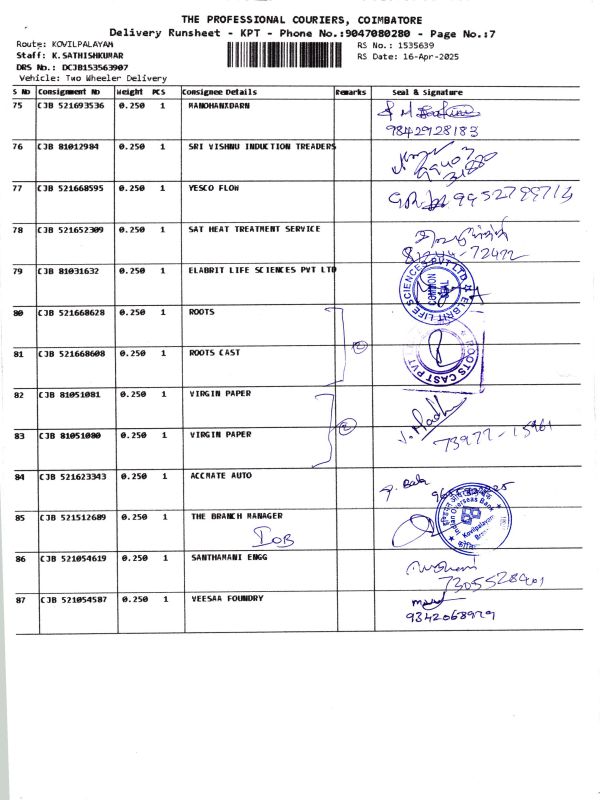 THE PROFESSIONAL COURIERS, COIMBATORE
Delivery Runsheet - KPT - Phone No.:9047080280 - Page No.:7
Route: KOVILPALAYAM
RS No.: 1535639
Staff: K.SATHISHKUMAR
RS Date: 16-Apr-2025
DRS No.: DCJB153563907
Vehicle: Two Wheeler Delivery
S No Consignment No Weight PCS Consignee Details Remarks Seal & Signature
75 CJB 521693536 0.250 1 MANOHANXDARN
9842928183
76 CJB 81012984 0.250 1 SRI VISHNU INDUCTION TREADERS
77 CJB 521668595 0.250 1 YESCO FLOW
9952799713
78 CJB 521652309 0.250 1 SAT HEAT TREATMENT SERVICE
79 CJB 81031632 0.250 1 ELABRIT LIFE SCIENCES PVT LTD
ELBRIT LIFE SCIENCES PVT LTD
80 CJB 521668628 0.250 1 ROOTS
81 CJB 521668608 0.250 1 ROOTS CAST
ROOTS CAST PVT
82 CJB 81051081 0.250 1 VIRGIN PAPER
83 CJB 81051080 0.250 1 VIRGIN PAPER
2
J. Madhu
73977-15961
84 CJB 521623343 0.250 1 ACCMATE AUTO
85 CJB 521512689 0.250 1 THE BRANCH MANAGER
IOB
Indian Overseas Bank
Kovilpalayam
86 CJB 521054619 0.250 1 SANTHAMANI ENGG
87 CJB 521054587 0.250 1 VEESAA FOUNDRY
9342068929